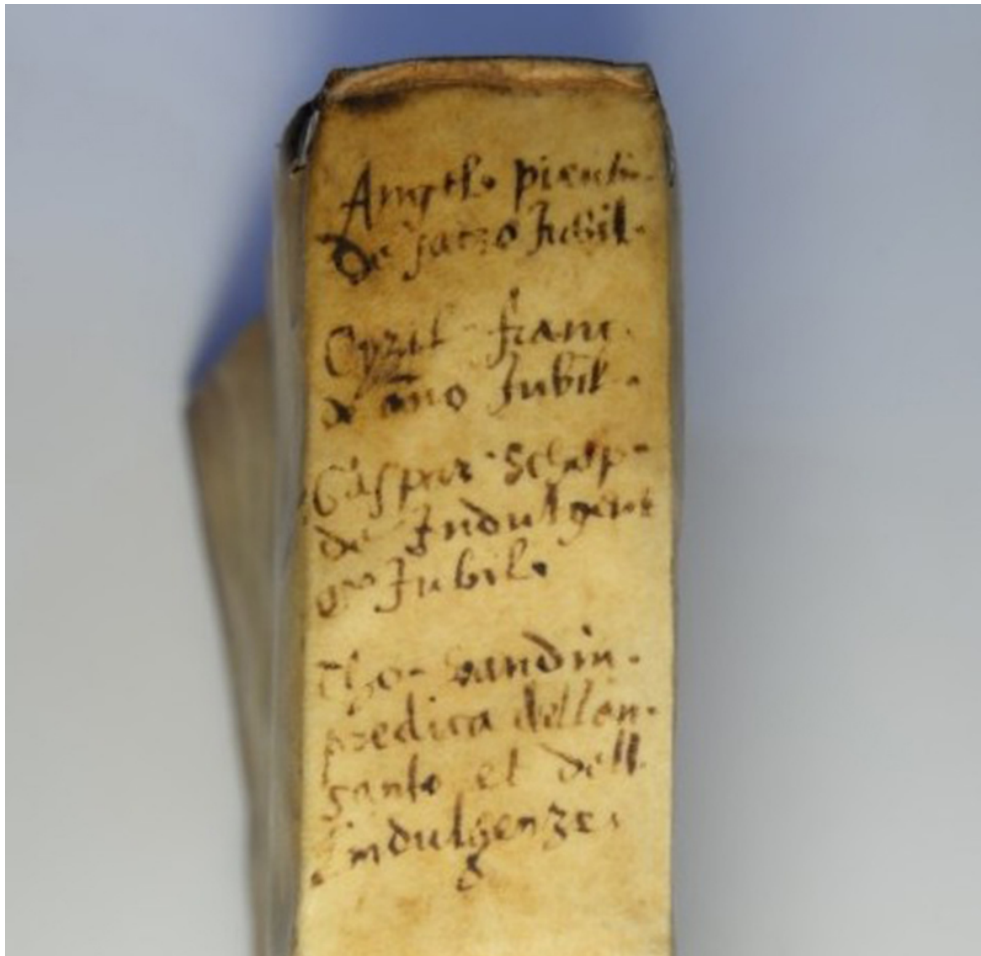 Angel. pientin.
De sacro Jubil.
Cyril. franc.
de año Jubil.
Caspar Schop-
de Indulgent
et Jubil.
tho- bandin.
predica dell an.
santo et dell
Indulgenze.